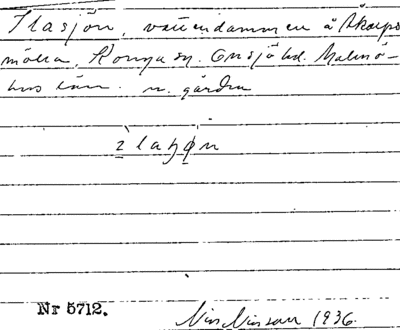 Ilasjön, vattendammen å Skarps
mölla, Konga sn. Onsjö hd. Malmö-
hus län. n. gården
ilahøn
Nr 5712.
Nils Nilsson 1936.